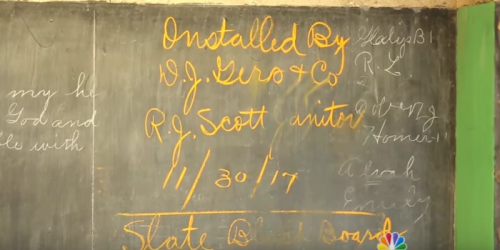 my he
God and
le with
Installed By
D.J. Gers & Co
R.J. Scott anitor
11/30/17
Slate Black Board
Gladys B
R. L.
Homer
Alvah
Emily